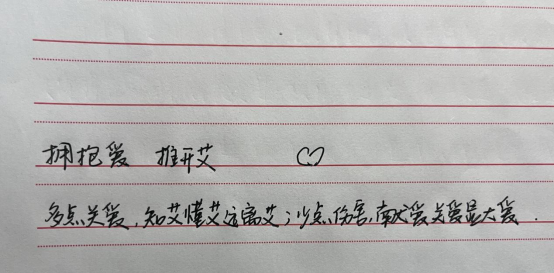 拥抱爱 推开艾
多点关爱,知艾懂艾远离艾;少点伤害,献爱关爱显大爱.